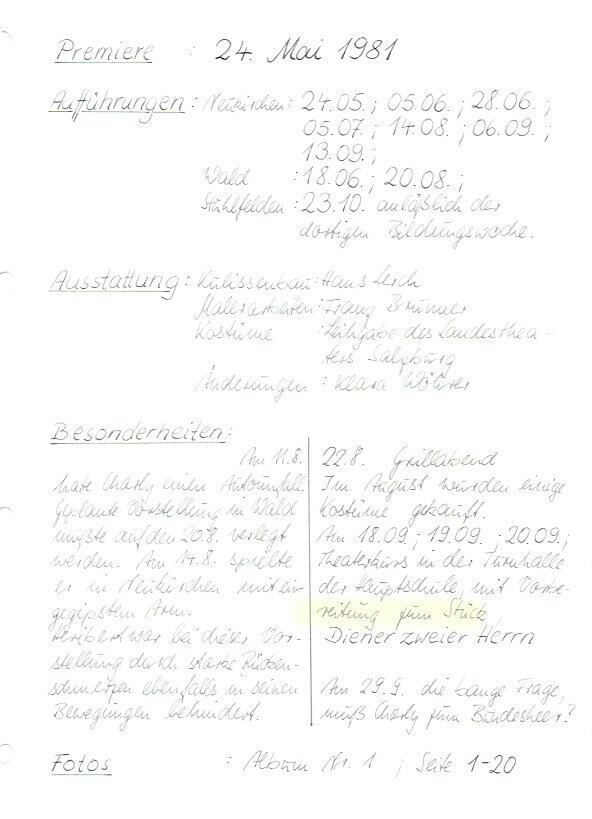 Premiere : 24. Mai 1981
Aufführungen : Neukirchen : 24.05. ; 05.06. ; 28.06. ;
05.07. ; 14.08. ; 06.09. ;
13.09. ;
Wald : 18.06. ; 20.08. ;
Stuhlfelden : 23.10. anläßlich der
dortigen Bildungswoche.
Ausstattung : Kulissenbau : Hans Lerch
Malerarbeiten : Franz Brunner
Kostüme : Leihgabe des Landesthea-
ters Salzburg
Änderungen : Klara Wöhrer
Besonderheiten :
Am 11.8.
hatte Charly einen Autounfall.
Geplante Vorstellung in Wald
mußte auf den 20.8. verlegt
werden. Am 14.8. spielte
er in Neukirchen mit ein-
gegipstem Arm.
Heribert war bei dieser Vor-
stellung durch starke Rücken-
schmerzen ebenfalls in seinen
Bewegungen behindert.
22.8. Grillabend
Im August wurden einige
Kostüme gekauft.
Am 18.09. ; 19.09. ; 20.09. ;
Theaterkurs in der Turnhalle
der Hauptschule, mit Vorbe-
reitung zum Stück
Diener zweier Herrn
Am 29.9. die bange Frage,
muß Charly zum Bundesheer?
Fotos : Album Nr. 1 ; Seite 1-20